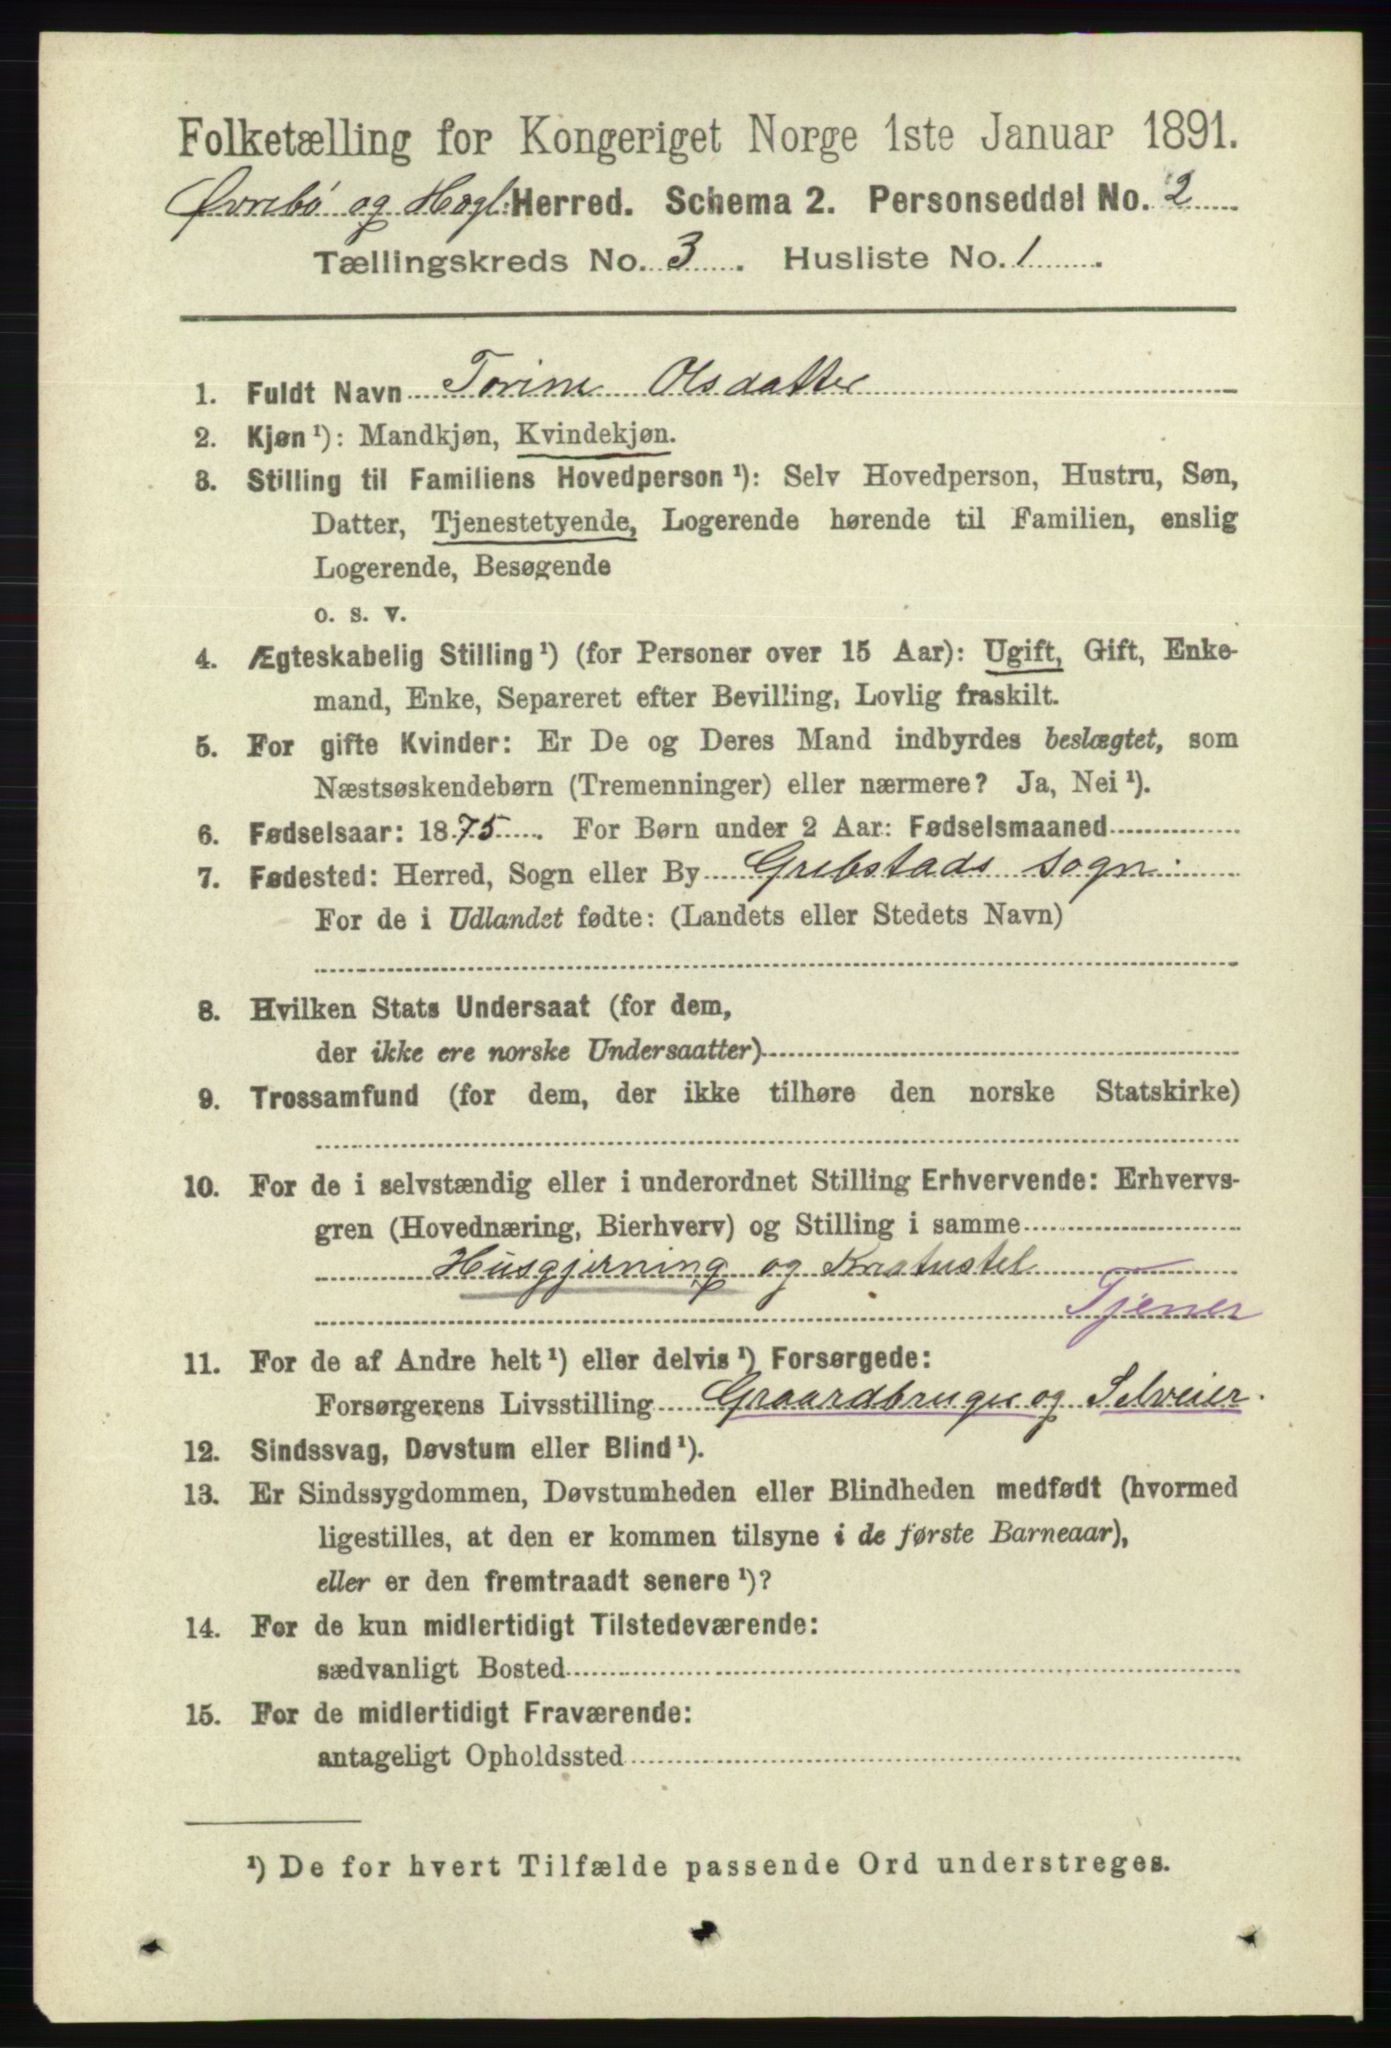 Folketælling for Kongeriget Norge 1ste Januar 1891.
Øvrebö og Hægl. Herred. Schema 2. Personseddel No. 2
Tællingskreds No. 3. Husliste No. 1.
1. Fuldt Navn Torine Olsdatter
2. Kjøn ¹): Mandkjøn, Kvindekjøn.
3. Stilling til Familiens Hovedperson ¹): Selv Hovedperson, Hustru, Søn,
Datter, Tjenestetyende, Logerende hørende til Familien, enslig
Logerende, Besøgende
o. s. v.
4. Ægteskabelig Stilling ¹) (for Personer over 15 Aar): Ugift, Gift, Enke-
mand, Enke, Separeret efter Bevilling, Lovlig fraskilt.
5. For gifte Kvinder: Er De og Deres Mand indbyrdes beslægtet, som
Næstsøskendebørn (Tremenninger) eller nærmere? Ja, Nei ¹).
6. Fødselsaar: 1875. For Børn under 2 Aar: Fødselsmaaned
7. Fødested: Herred, Sogn eller By Grebstads sogn.
For de i Udlandet fødte: (Landets eller Stedets Navn)
8. Hvilken Stats Undersaat (for dem,
der ikke ere norske Undersaatter)
9. Trossamfund (for dem, der ikke tilhøre den norske Statskirke)
10. For de i selvstændig eller i underordnet Stilling Erhvervende: Erhvervs-
gren (Hovednæring, Bierhverv) og Stilling i samme
Husgjerning og Kreaturstel
Tjener
11. For de af Andre helt ¹) eller delvis ¹) Forsørgede:
Forsørgerens Livsstilling Graardbruger og Selveier.
12. Sindssvag, Døvstum eller Blind ¹).
13. Er Sindssygdommen, Døvstumheden eller Blindheden medfødt (hvormed
ligestilles, at den er kommen tilsyne i de første Barneaar),
eller er den fremtraadt senere ¹)?
14. For de kun midlertidigt Tilstedeværende:
sædvanligt Bosted
15. For de midlertidigt Fraværende:
antageligt Opholdssted
¹) De for hvert Tilfælde passende Ord understreges.